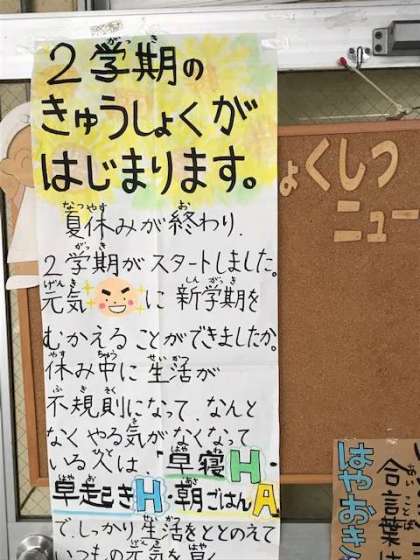 2学期の
きゅうしょくが
はじまります。
夏休みが終わり、
2学期がスタートしました。
元気に新学期を
むかえることができましたか。
休み中に生活が
不規則になって、なんと
なくやる気がなくなって
いる人は、「早寝H・
早起きH・朝ごはんA
で、しっかり生活をととのえて
いつもの元気を
ょくしつ
ニュー
合言葉は
はやおき